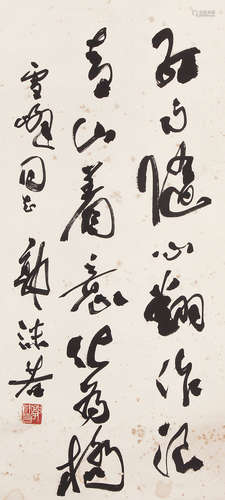 红雨随心翻作浪
青山着意化为桥
雪峰同志
郭沫若